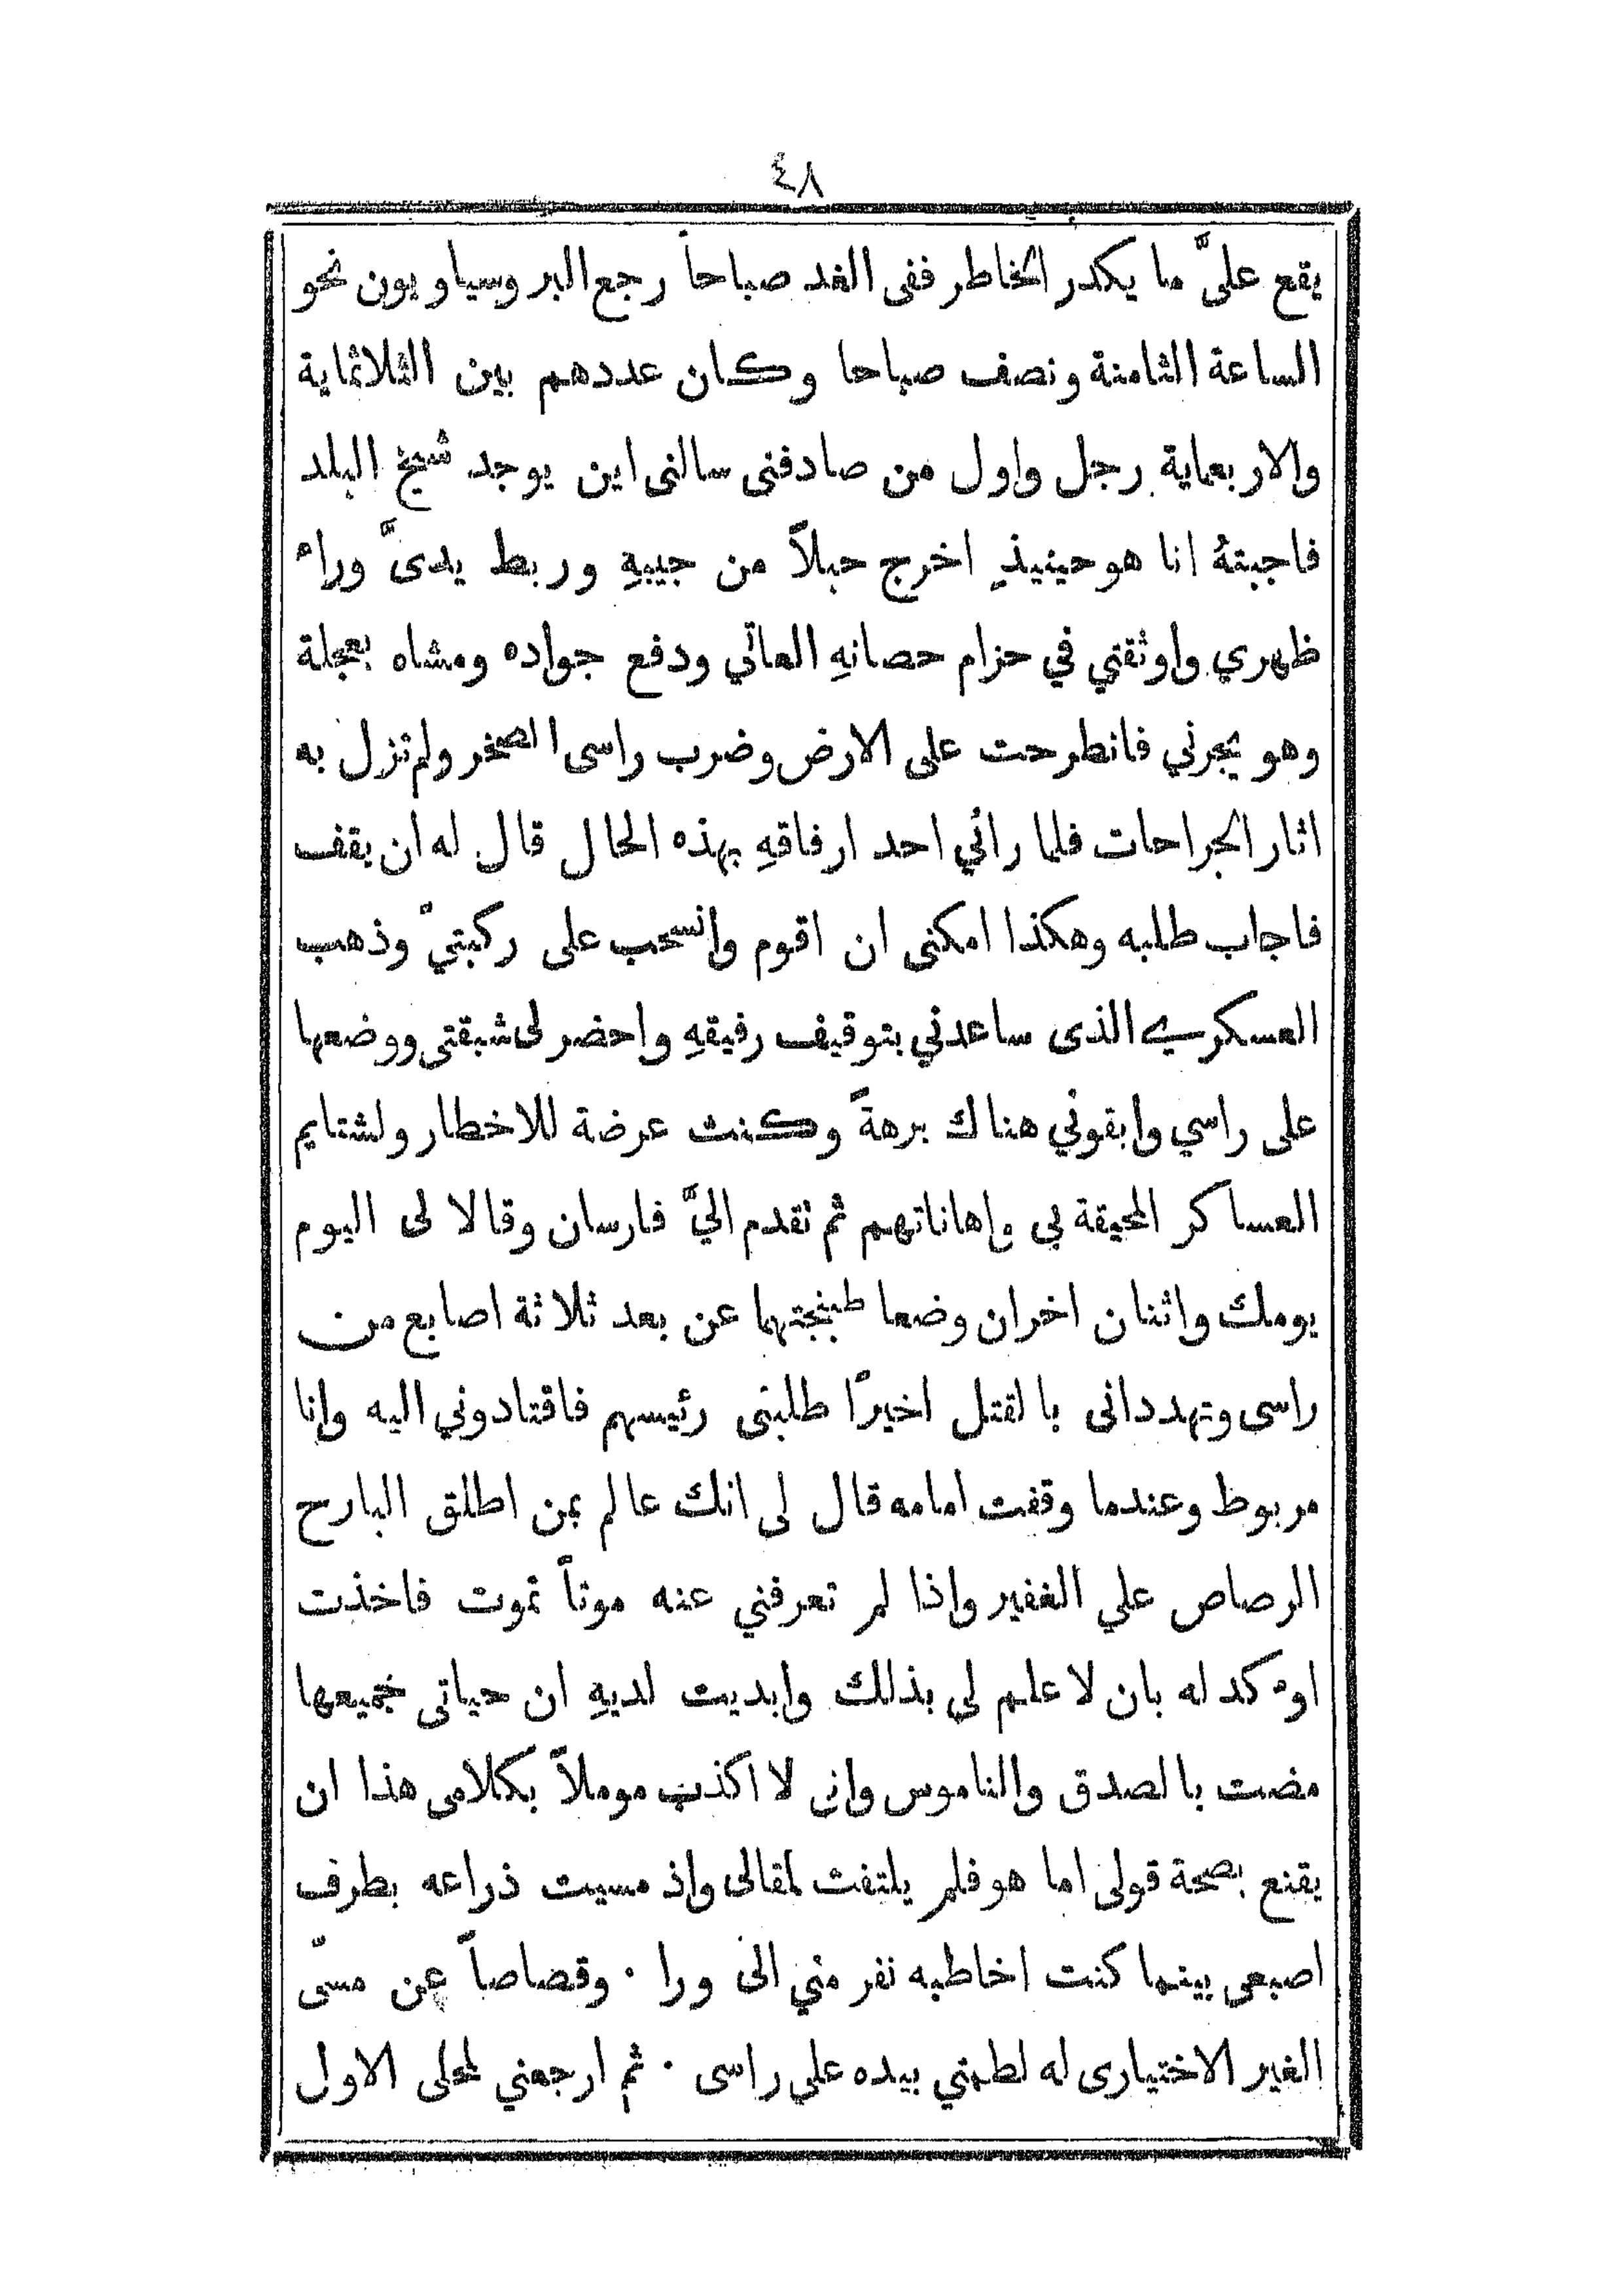 ٤٨
يقع عليَّ ما يكدر الخاطر ففى الغد صباحاً رجع البروسياويون نحو
الساعة الثامنة ونصف صباحا وكان عددهم بين الثلاثماية
والاربعماية رجل واول من صادفنى سالنى اين يوجد شيخ البلد
فاجبتهُ انا هو حينيذٍ اخرج حبلاً من جيبهِ وربط يدىَّ وراء
ظهري واوثقتي في حزام حصانهِ العالي ودفع جواده ومشاه بعجلة
وهو يجرني فانطرحت على الارض وضرب راسى الصخر ولم تزل به
اثار الجراحات فلما رائي احد ارفاقهِ بهذه الحال قال له ان يقف
فاجاب طلبه وهكذا امكنى ان اقوم وانسحب على ركبتيّ وذهب
العسكري الذى ساعدني بتوقيف رفيقهِ واحضر لى شبقتى ووضعها
على راسي وابقوني هناك برهةً وكنت عرضة للاخطار ولشتايم
العساكر المحيقة بي واهاناتهم ثم تقدم اليَّ فارسان وقالا لى اليوم
يومك واثنان اخران وضعا طبنجتهما عن بعد ثلاثة اصابع من
راسى وتهددانى بالقتل اخيرًا طلبنى رئيسهم فاقتادوني اليه وانا
مربوط وعندما وقفت امامه قال لى انك عالم بمن اطلق البارح
الرصاص علي الغفير واذا لم تعرفني عنه موتاً تموت فاخذت
اوءكد له بان لا علم لي بذلك وابديت لديهِ ان حياتى جميعها
مضت بالصدق والناموس واني لا اكذب موملاً بكلامى هذا ان
يقنع بصحة قولى اما هو فلم يلتفت لمقالى واذ مسيت ذراعه بطرف
اصبعى بينما كنت اخاطبه نفر مني الى ورا ٠ وقصاصاً عن مسىّ
الغير الاختيارى له لطمتي بيده على راسى ٠ ثم ارجعني لمحلى الاول